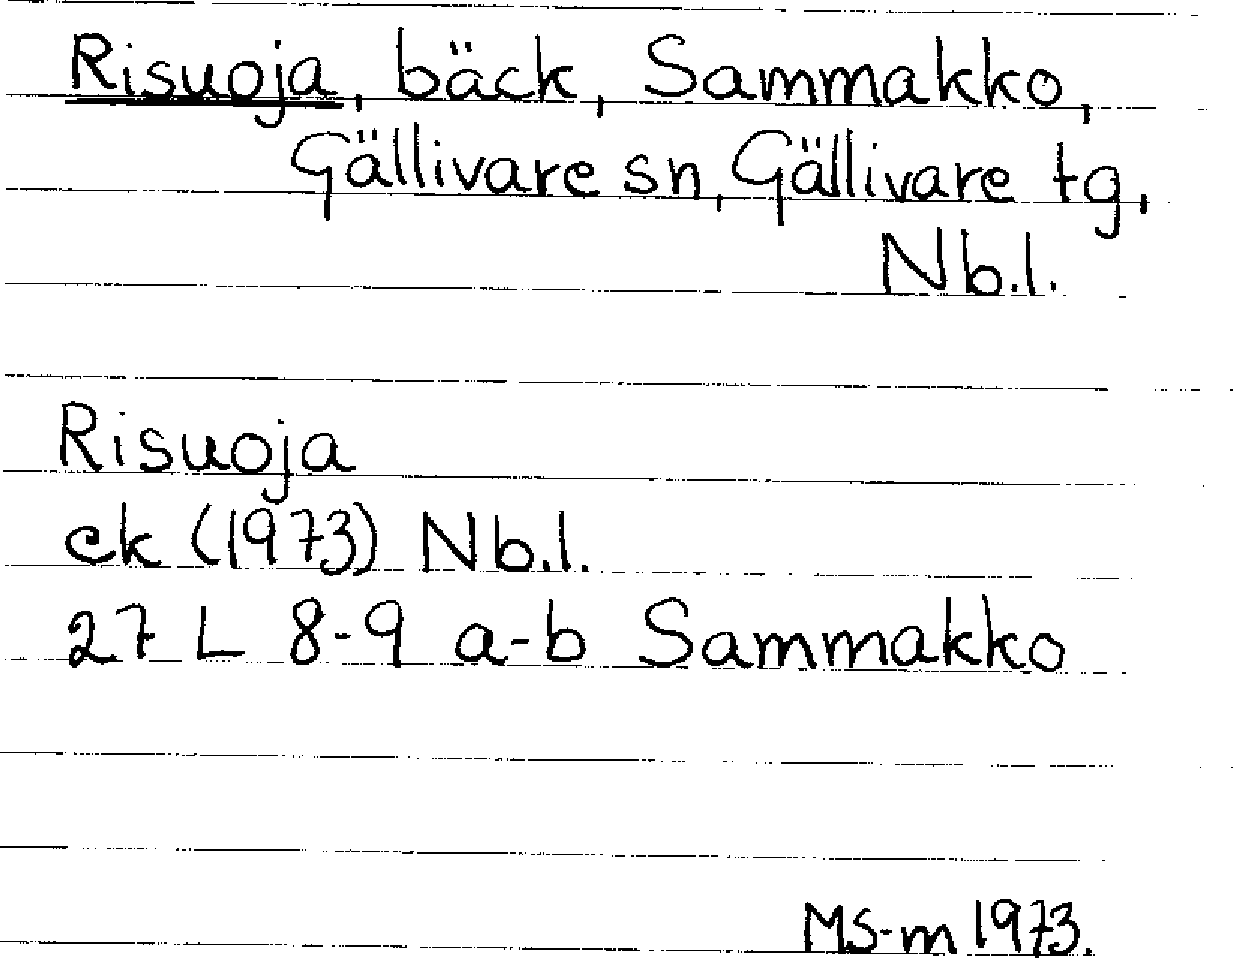 Risuoja, bäck, Sammakko,
Gällivare sn, Gällivare tg,
Nb.l.
Risuoja
ek (1973) Nb.l.
27 L 8-9 a-b Sammakko
MS-m 1973.